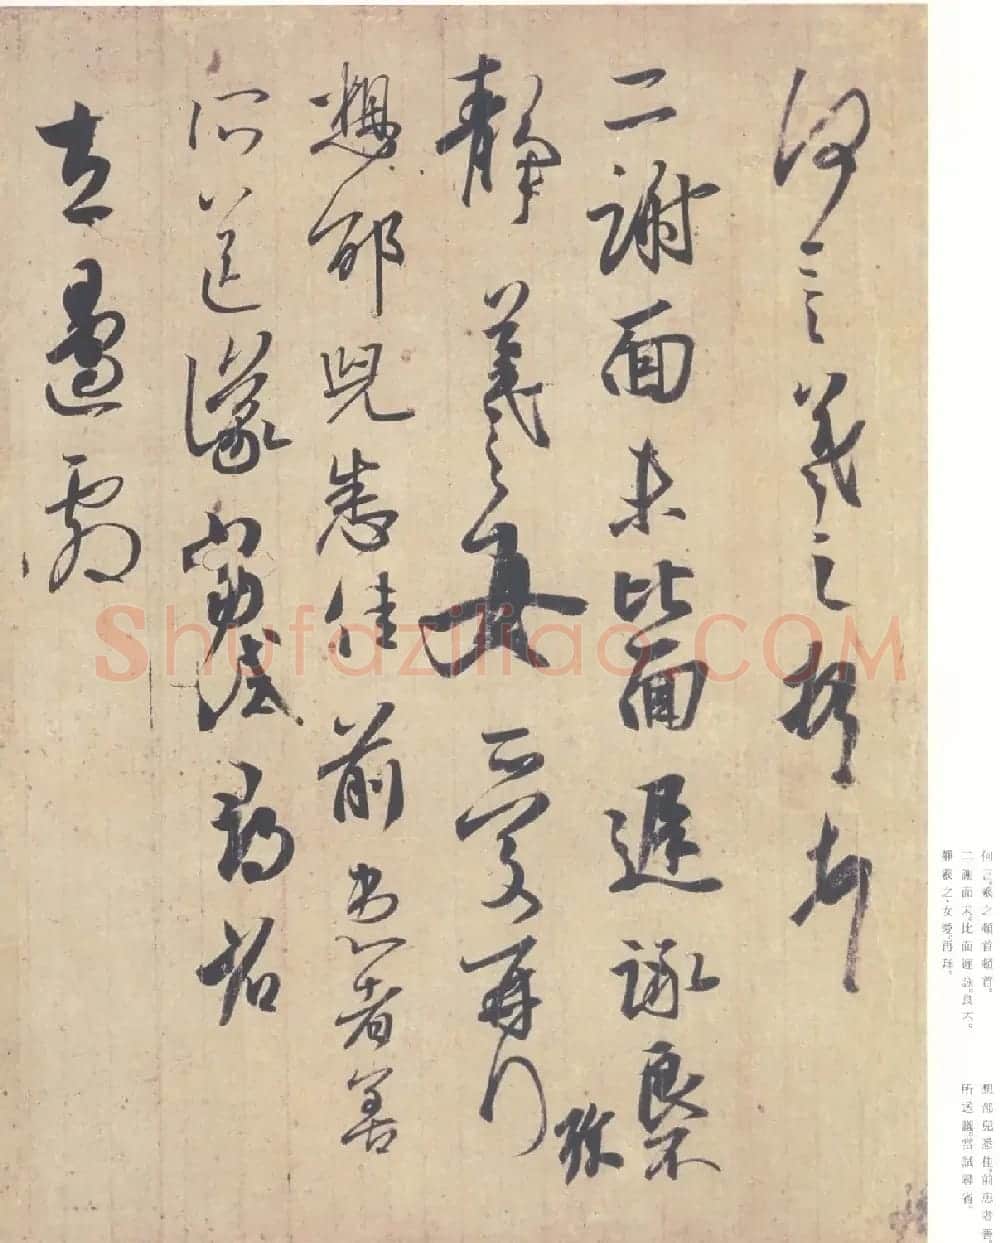 何言羲之頓首頓首
二謝面未比面遲詠良不
静羲之女愛再拜
珍
想邵兒悉佳前患者善
所送議當試尋省
左邊劇
Shufaziliao.COM
何言。羲之頓首頓首。
二謝面未。比面遲詠。良不。
靜羲之女愛。再拜。
想邵兒悉佳。前患者善。
所送議。當試尋省。